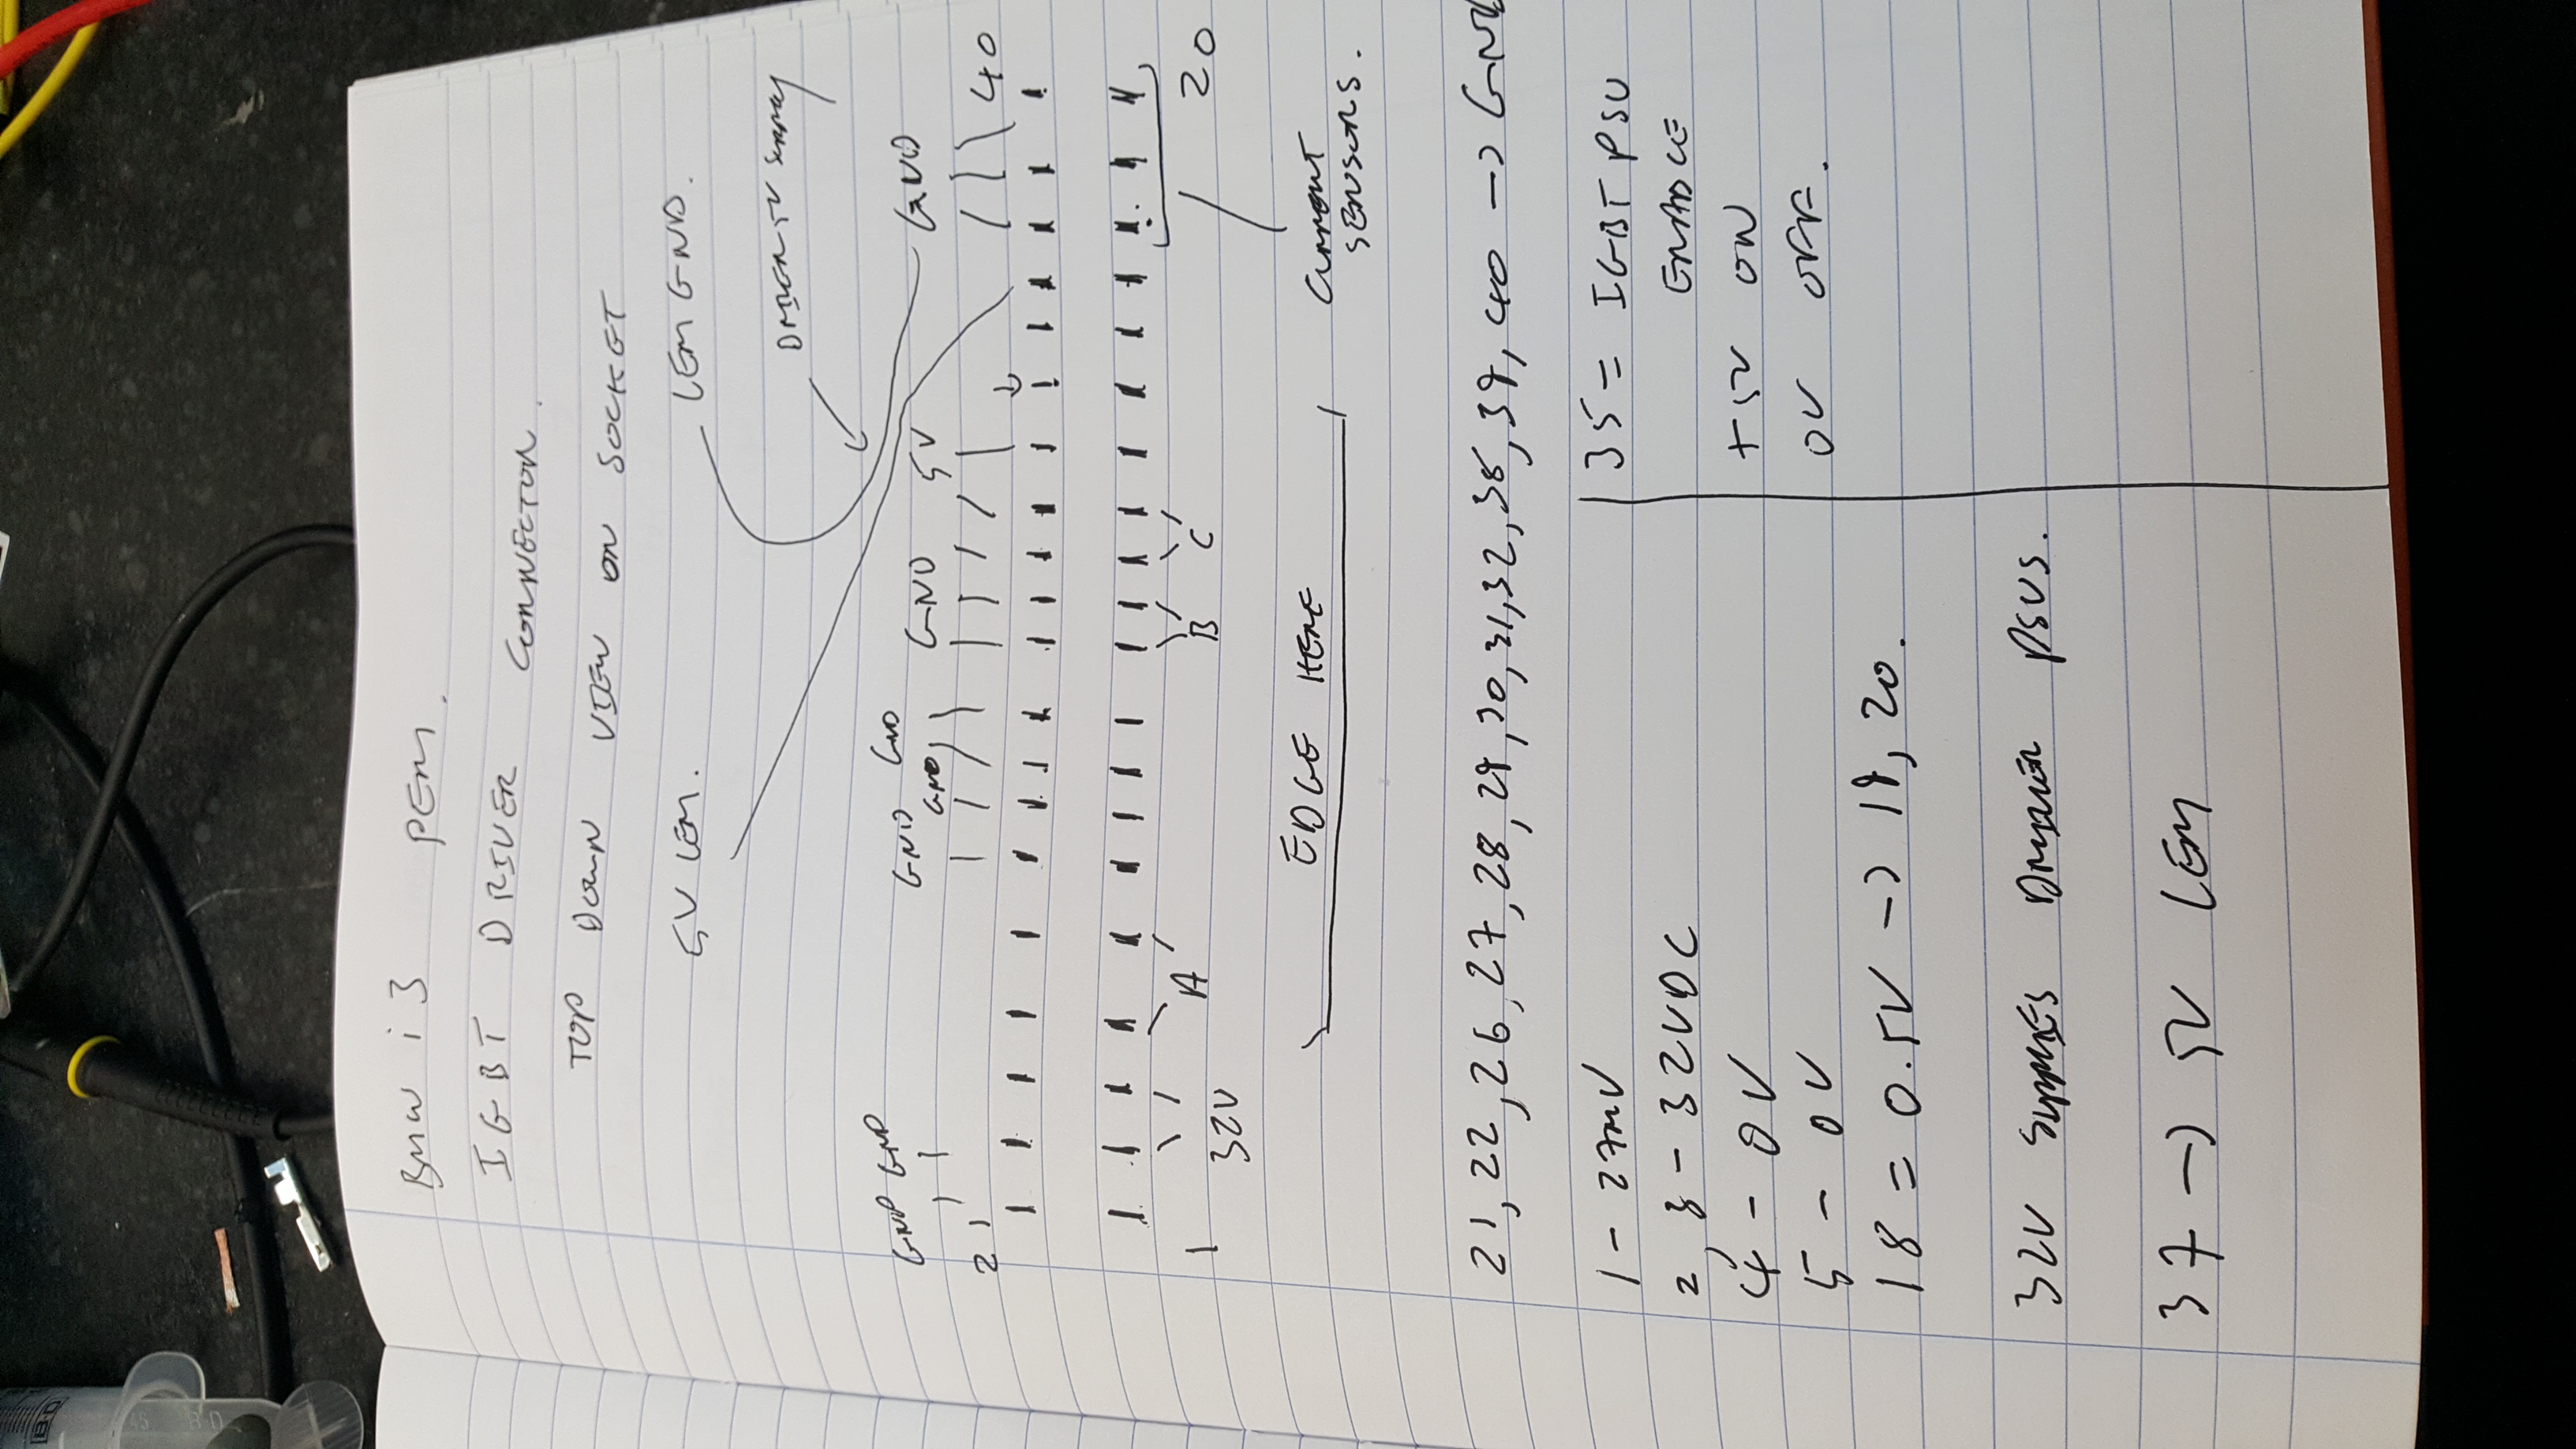 BMW i3 PEM.
IGBT DRIVER CONNECTOR.
TOP DOWN VIEW ON SOCKET
5V LEM. LEM GND.
DRIVER 5V SUPPLY
GND GND GND GND GND GND 5V GND
21 40
1 32V A B C 20
EDGE HERE
CURRENT
SENSORS.
21, 22, 26, 27, 28, 29, 30, 31, 32, 38, 39, 40 → GND
1 - 27mV
2 3 - 32VDC
4 - 0V
5 - 0V
18 = 0.5V → 19, 20.
32V SUPPLIES DRIVER PSUS.
37 → 5V LEM
35 = IGBT PSU
ENABLE
+5V ON
0V OFF.